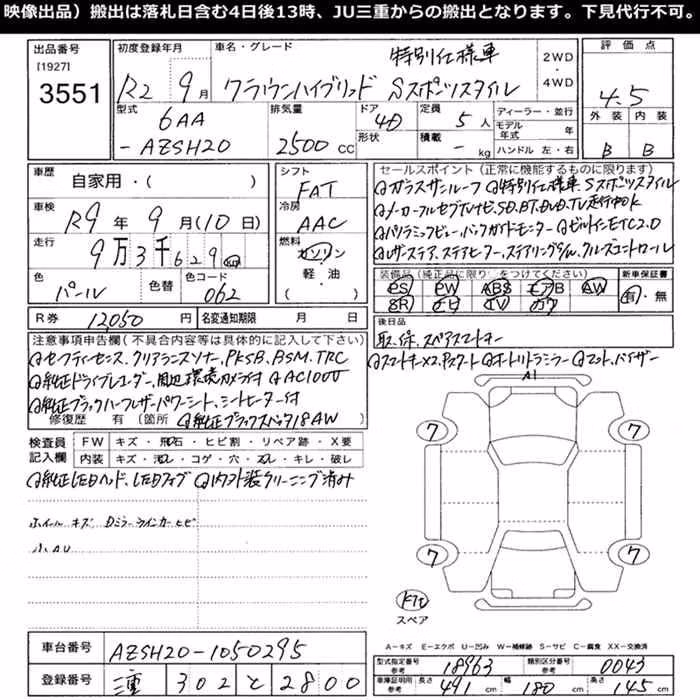 映像出品）搬出は落札日含む4日後13時、JU三重からの搬出となります。下見代行不可。
出品番号
[1927]
3551
初度登録年月
R2 9月
車名・グレード
特別仕様車
クラウンハイブリッド Sスポーツスタイル
2WD
・
4WD
評価点
4.5
外装 内装
B B
型式
6AA
-AZSH20
排気量
2500 CC
ドア 4D
形状
定員 5人
積載 - kg
ディーラー・並行
モデル年式 年
ハンドル 左・右
車歴
自家用・( )
車検
R9年9月(10日)
走行
9万3千629km
色 パール
色替
色コード 062
シフト
FAT
冷房
AAC
燃料
ガソリン
軽・油
( )
セールスポイント（正常に機能するものに限ります）
ガラスサンルーフ 特別仕様車 Sスポーツスタイル
メーカーフルセグTVナビ、SD、BT、BluB、TV走行中OK
パノラミックビュー、バックガイドモニター ビルトインETC2.0
レザーステア、ステアヒーター、ステアリングSW、クルーズコントロール
装備品（純正品に限り○をつけてください）
PS PW ABS エアB AW
SR ナビ TV カワ
新車保証書
有・無
R券 12050円
名変通知期限 月 日
後日品
取、保、スペアスマートキー
注意事項申告欄（不具合内容等は具体的に記入して下さい）
セーフティセンス、クリアランスソナー、PKSB、BSM、TRC
スマートキーX2、Pスタート オートリトラミラー マット、バイザー
純正ドライブレコーダー、周辺環境カメラ付 AC100V
純正ブラックハーフレザーパワーシート、シートヒーター付
修復歴 有(箇所 純正ブラックスパッタ18AW )
検査員記入欄
FW キズ・飛石・ヒビ割・リペア跡・X要
内装 キズ・汚レ・コゲ・穴・ヌレ・キレ・破レ
純正LEDヘッド、LEDフォグ 内外装クリーニング済み
ホイールキズ Dミラーウインカーヒビ
小AU
A1
7 7
7 7
キズ
スペア
A－キズ E－エクボ U－凹み W－補修跡 S－サビ C－腐食 XX－交換済
車台番号 AZSH20-1050295
登録番号 三重 302 と 2800
型式指定番号 参考 18963
類別区分番号 参考 0043
車庫証明用 参考 長さ 491 cm 幅 180 cm 高さ 145 cm